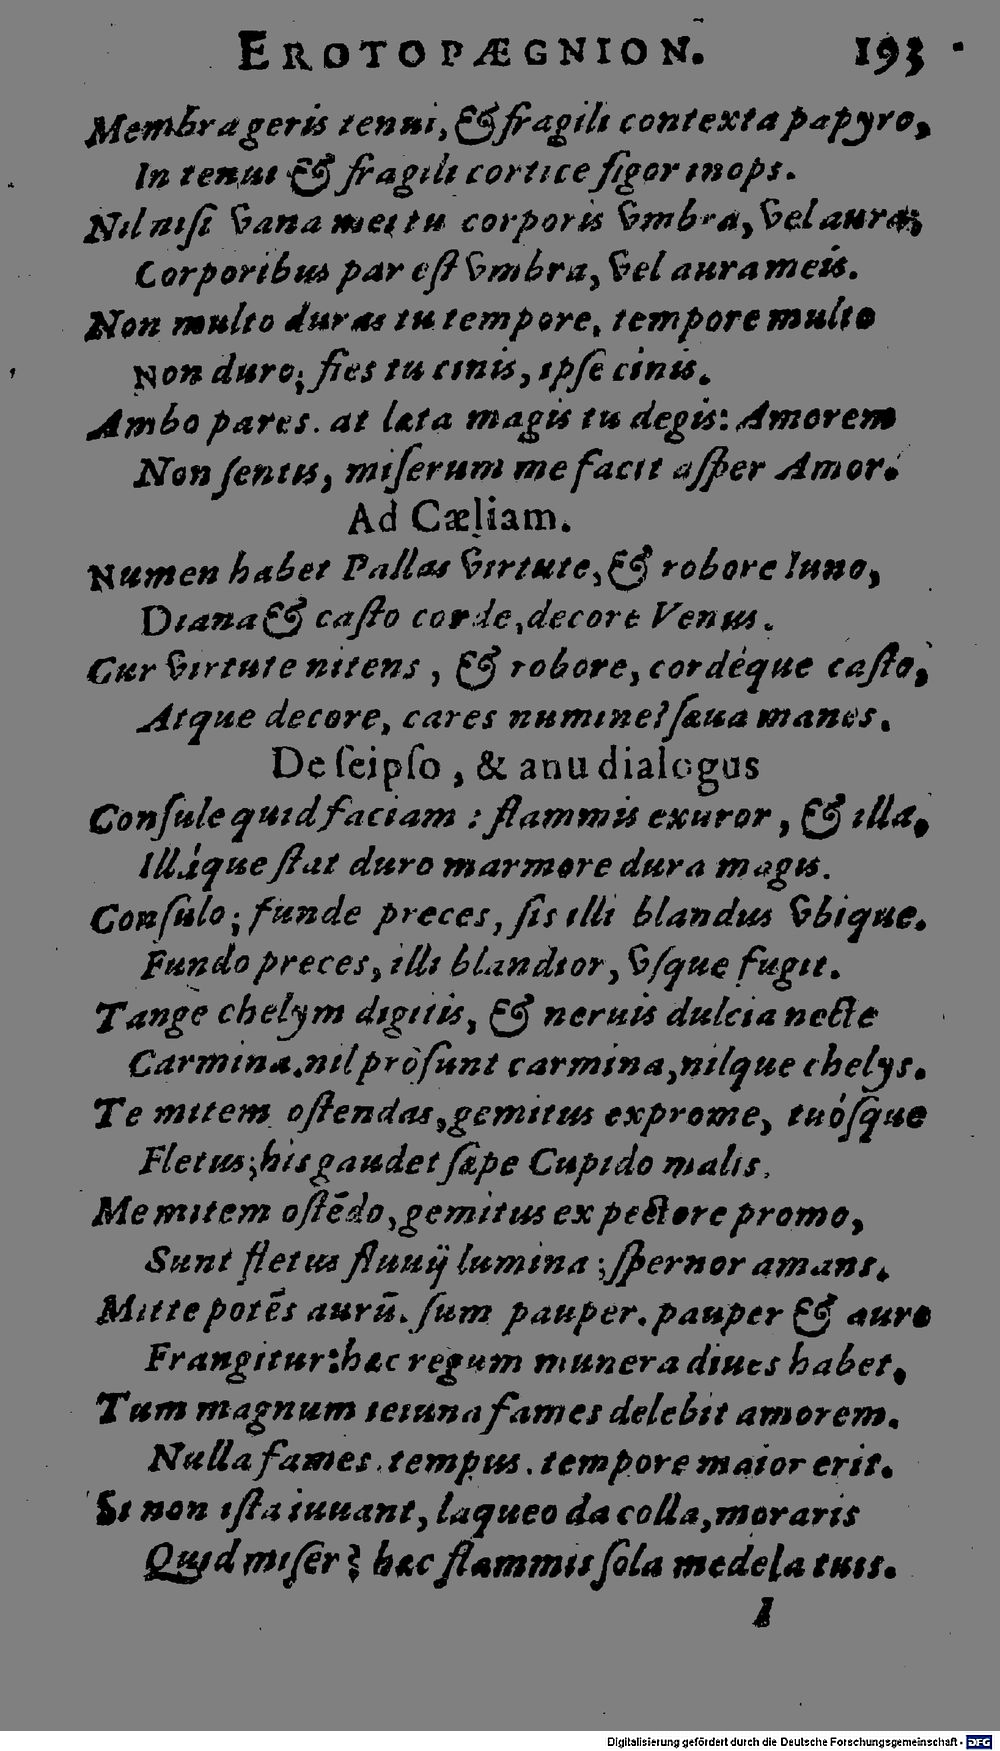 EROTOPÆGNION. 193
Membra geris tenui, & fragili contexta papyro,
In tenui & fragili cortice figor inops.
Nil nisi vana mei tu corporis vmbra, vel aura;
Corporibus par est vmbra, vel aura meis.
Non multo duras tu tempore, tempore multo
Non duro; fies tu cinis, ipse cinis.
Ambo pares. at læta magis tu degis: Amorem
Non sentis, miserum me facit asper Amor.
Ad Cæliam.
Numen habet Pallas virtute, & robore Iuno,
Diana & casto corde, decore Venus.
Cur virtute nitens, & robore, cordéque casto,
Atque decore, cares numine? sæua manes.
De seipso, & anu dialogus
Consule quid faciam: flammis exuror, & illa,
Illáque stat duro marmore dura magis.
Consulo; funde preces, sis illi blandus vbique.
Fundo preces, illi blandior, vsque fugit.
Tange chelym digitis, & neruis dulcia necte
Carmina. nil prosunt carmina, nilque chelys.
Te mitem ostendas, gemitus exprome, tuósque
Fletus; his gaudet sæpe Cupido malis.
Me mitem ostēdo, gemitus ex pectore promo,
Sunt fletus fluuij lumina; spernor amans.
Mitte potēs aurū. sum pauper. pauper & auro
Frangitur: hæc regum munera diues habet.
Tum magnum ieiuna fames delebit amorem.
Nulla fames. tempus. tempore maior erit.
Si non ista iuuant, laqueo da colla, moraris
Quid miser? hæc flammis sola medela tuis.
I
Digitalisierung gefördert durch die Deutsche Forschungsgemeinschaft - DFG